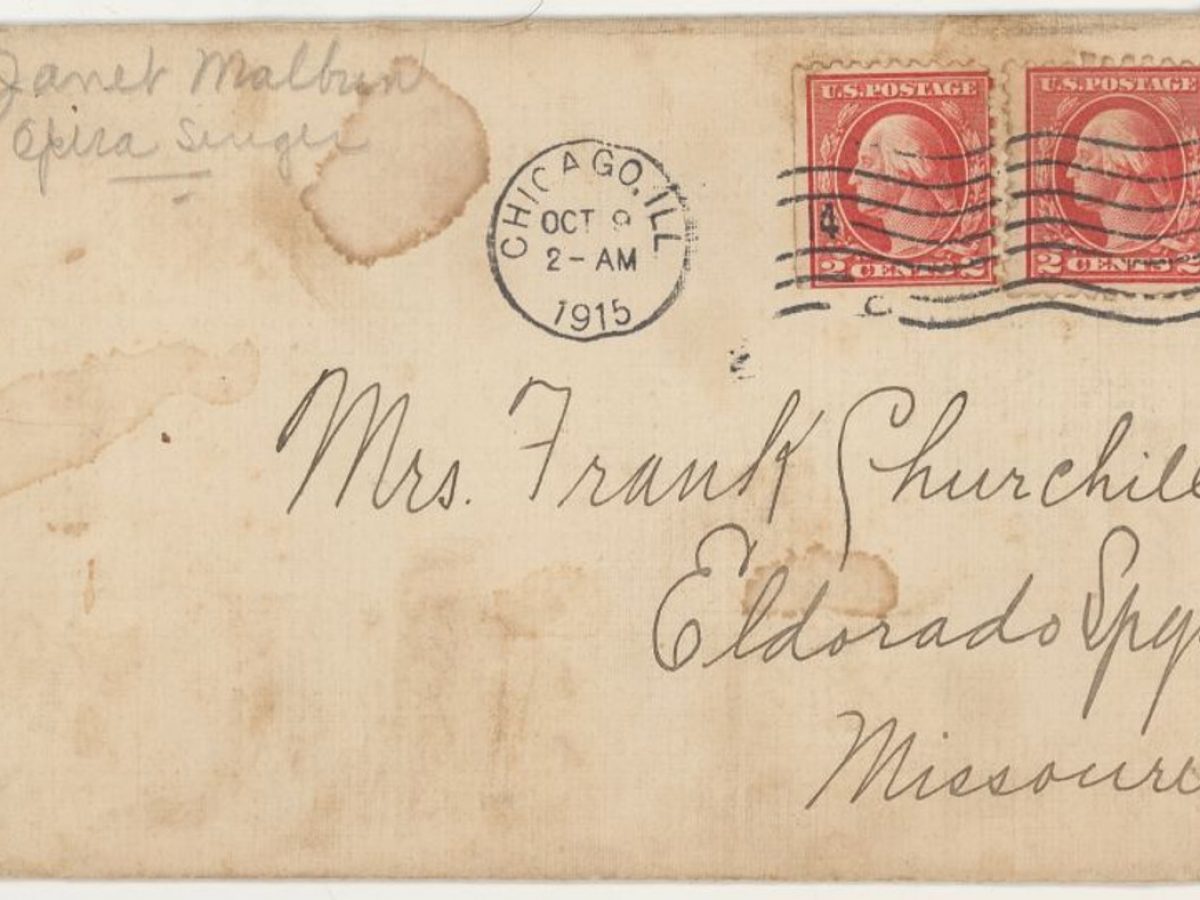 Janet Malbun
Opera Singer
CHICAGO, ILL
OCT 9
2-AM
1915
U.S. POSTAGE
4
2 CENTS 2
U.S. POSTAGE
2 CENTS 2
Mrs. Frank Churchill
Eldorado Spg
Missouri